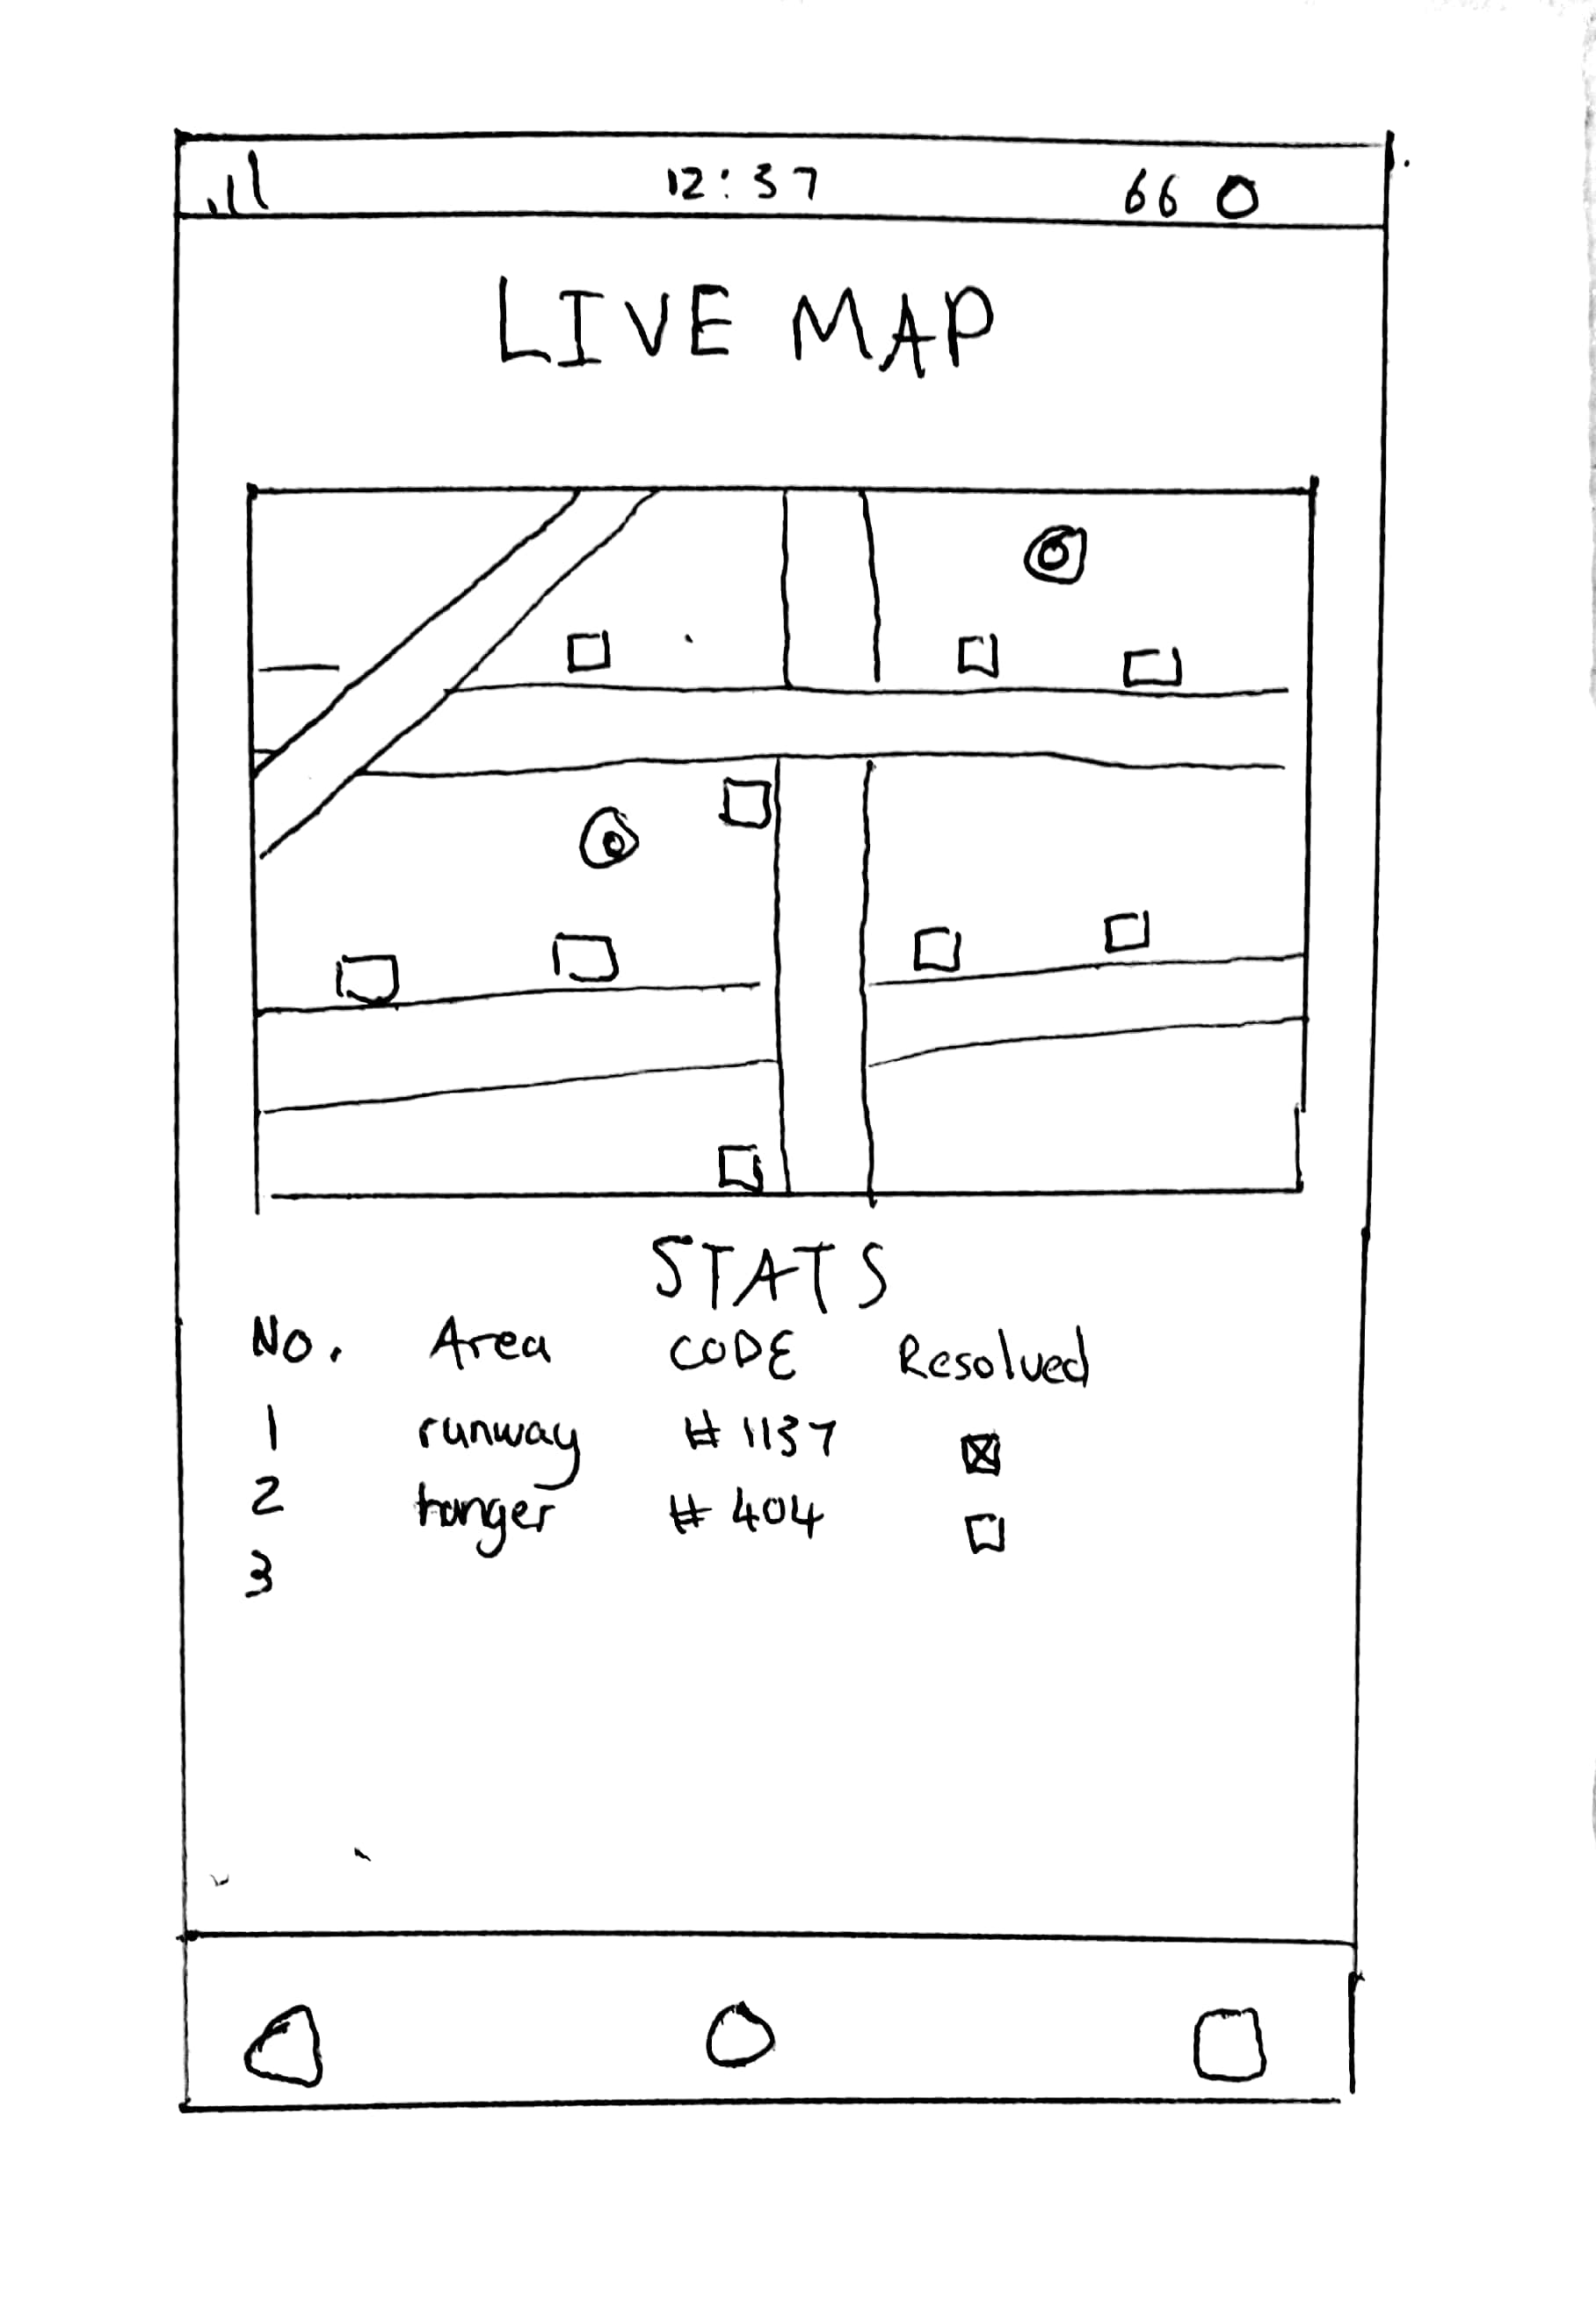 12:37 66
LIVE MAP
STATS
No. Area CODE Resolved
1 runway #1137
2 hanger #404
3